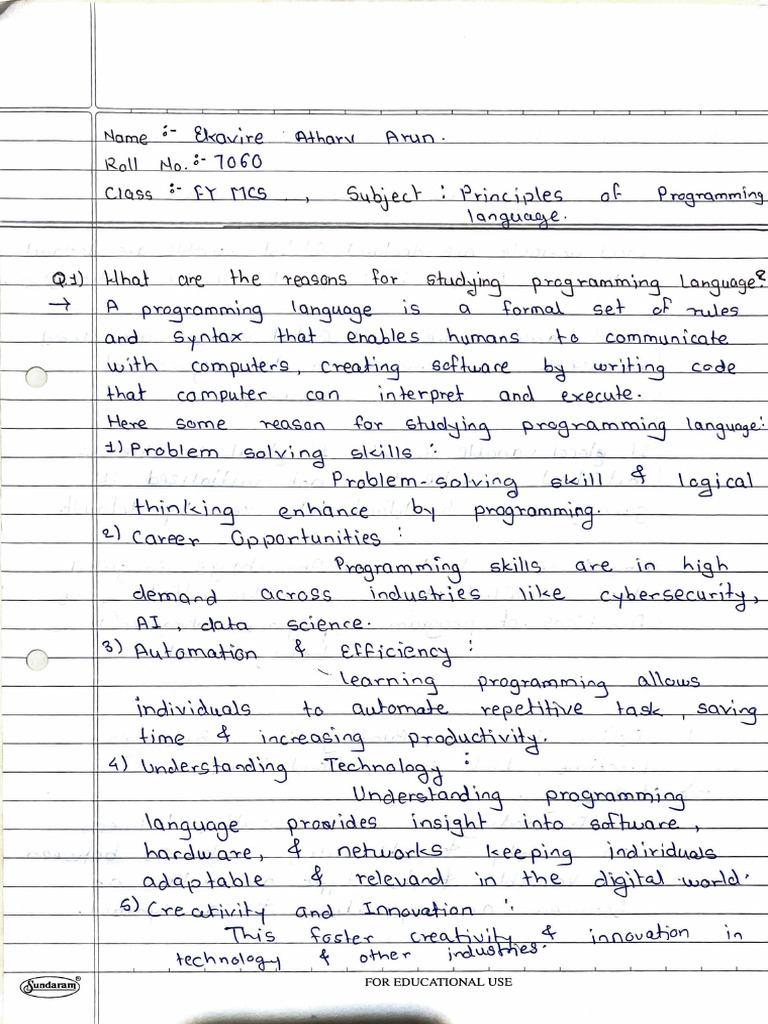 Name :- Ekavire Atharv Arun.
Roll No. :- 7060
Class :- FY MCS , Subject : Principles of Programming
language.
Q.1) What are the reasons for studying programming Language?
→ A programming language is a formal set of rules
and syntax that enables humans to communicate
with computers, creating software by writing code
that computer can interpret and execute.
Here some reason for studying programming language:
1) Problem solving skills :
Problem-solving skill & logical
thinking enhance by programming.
2) Career Opportunities :
Programming skills are in high
demand across industries like cybersecurity,
AI, data science.
3) Automation & Efficiency :
Learning programming allows
individuals to automate repetitive task, saving
time & increasing productivity.
4) Understanding Technology :
Understanding programming
language provides insight into software,
hardware, & networks keeping individuals
adaptable & relevand in the digital world.
5) Creativity and Innovation :
This foster creativity & innovation in
technology & other industries.
Sundaram® FOR EDUCATIONAL USE